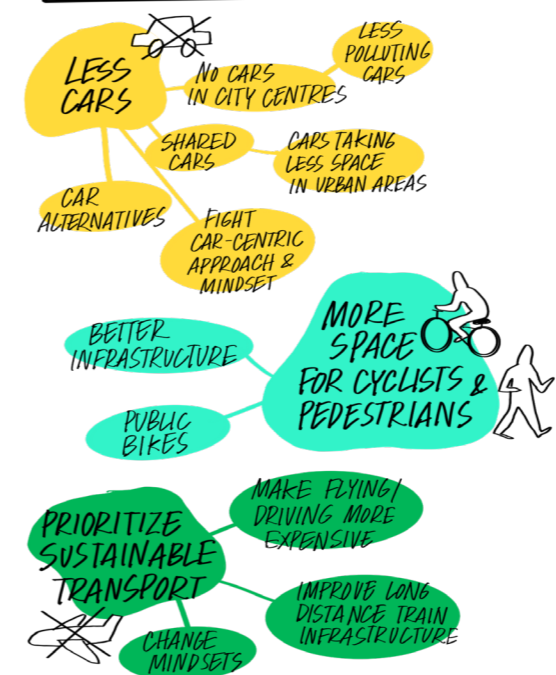 LESS
CARS
NO CARS
IN CITY CENTRES
LESS
POLLUTING
CARS
SHARED
CARS
CARS TAKING
LESS SPACE
IN URBAN AREAS
CAR
ALTERNATIVES
FIGHT
CAR-CENTRIC
APPROACH &
MINDSET
MORE
SPACE
FOR CYCLISTS &
PEDESTRIANS
BETTER
INFRASTRUCTURE
PUBLIC
BIKES
PRIORITIZE
SUSTAINABLE
TRANSPORT
MAKE FLYING/
DRIVING MORE
EXPENSIVE
IMPROVE LONG
DISTANCE TRAIN
INFRASTRUCTURE
CHANGE
MINDSETS